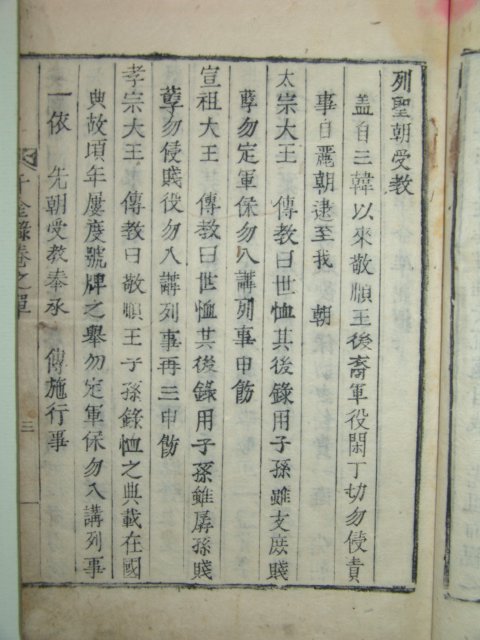 列聖朝受教
盖自三韓以來敬順王後裔軍役閑丁切勿侵責
事自麗朝逮至我 朝
太宗大王 傳教曰世恤其後錄用子孫雖支庶賤
孽勿定軍保勿入講列事申飭
宣祖大王 傳教曰世恤其後錄用子孫雖孱孫賤
孽勿侵賤役勿入講列事再三申飭
孝宗大王 傳教曰敬順王子孫錄恤之典載在國
典故頃年屢度號牌之擧勿定軍保勿入講列事
一依 先朝受教奉承 傳施行事
千金錄卷之單
三